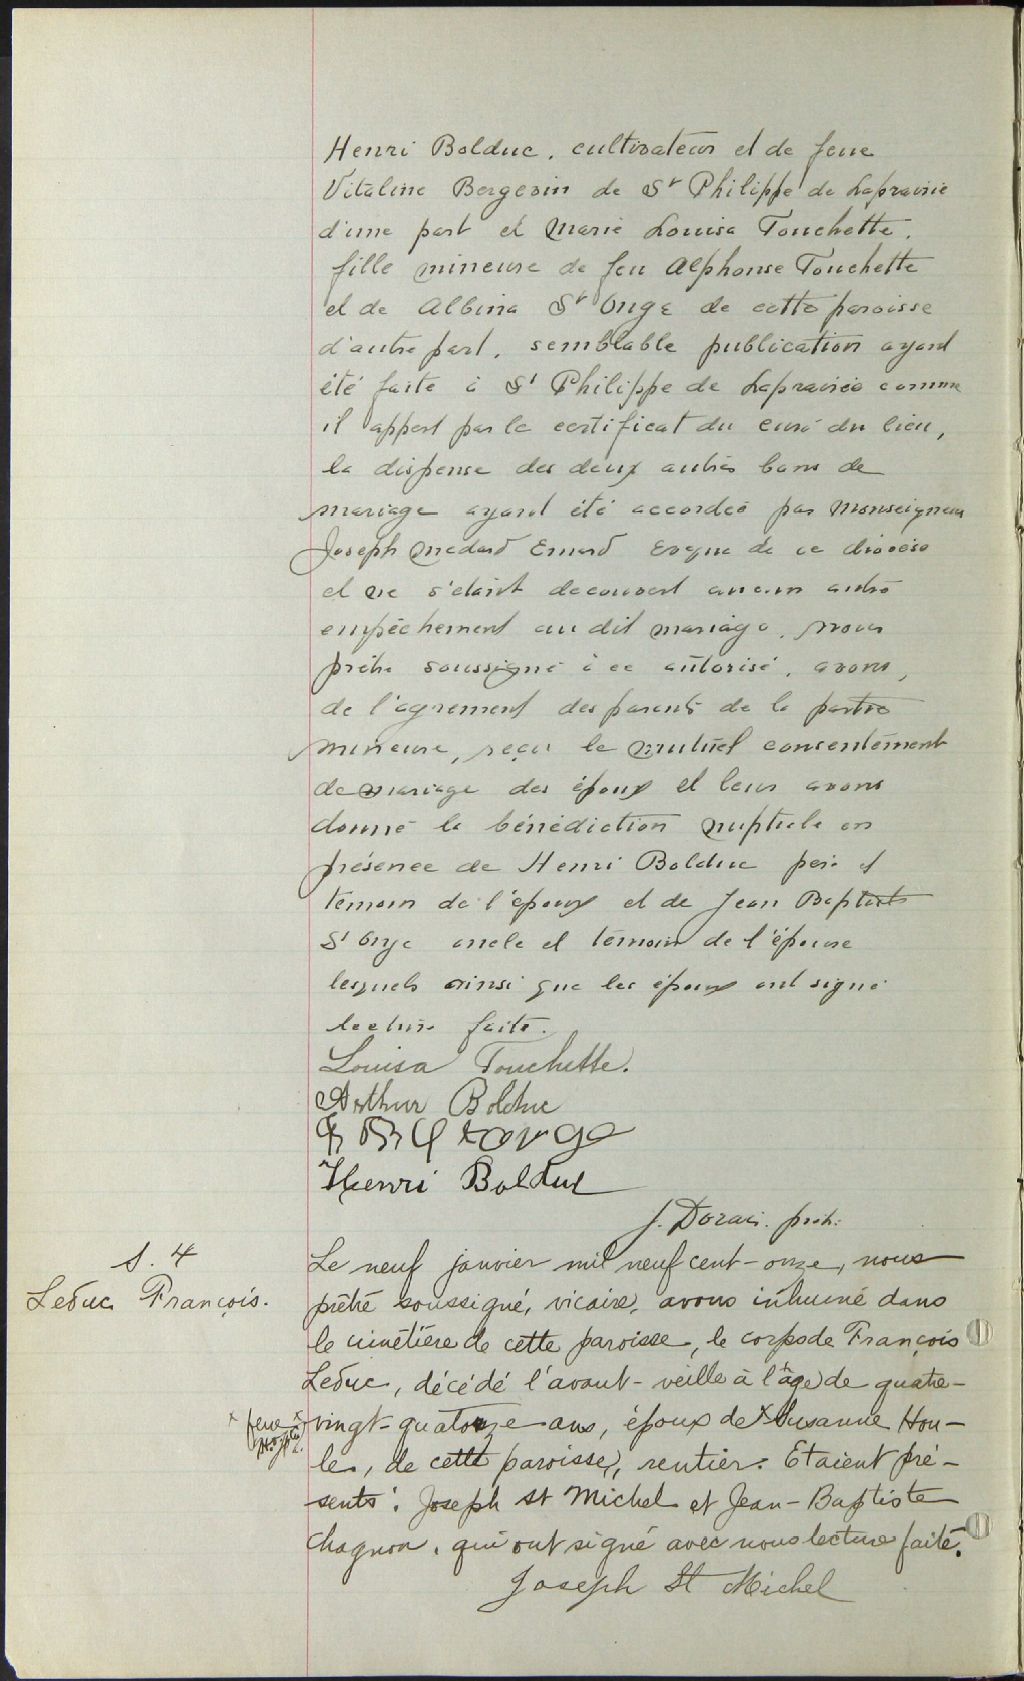 Henri Bolduc, cultivateur et de feue
Vitaline Bergevin de St Philippe de Laprairie
d'une part et Marie Louisa Touchette,
fille mineure de feu Alphonse Touchette
et de Albina St Onge de cette paroisse
d'autre part, semblable publication ayant
été faite à St Philippe de Laprairie comme
il appert par le certificat du curé du lieu,
la dispense des deux autres bans de
mariage ayant été accordée par Monseigneur
Joseph Médard Emard Evêque de ce diocèse
et ne s'étant découvert aucun autre
empêchement au dit mariage, nous
prêtre soussigné à ce autorisé, avons,
de l'agrement des parents de la partie
mineure, reçu le mutuel consentement
de mariage des époux et leur avons
donné la bénédiction nuptiale en
présence de Henri Bolduc père et
témoin de l'époux et de Jean Baptiste
St Onge oncle et témoin de l'épouse
lesquels ainsi que les époux ont signé
lecture faite.
Louisa Touchette.
Arthur Bolduc
Henri Bolduc
J. Dorais. ptre.
S. 4
Leduc François.
Le neuf janvier mil neuf cent-onze, nous
prêtre soussigné, vicaire, avons inhumé dans
le cimétière de cette paroisse, le corps de François
Leduc, décédé l'avant-veille à l'âge de quatre-
x feue x
vingt-quatorze ans, époux de x Susanne Hou-
le, de cette paroisse, rentier. Etaient pré-
sents: Joseph St Michel et Jean-Baptiste
Chagnon, qui ont signé avec nous lecture faite.
Joseph St Michel